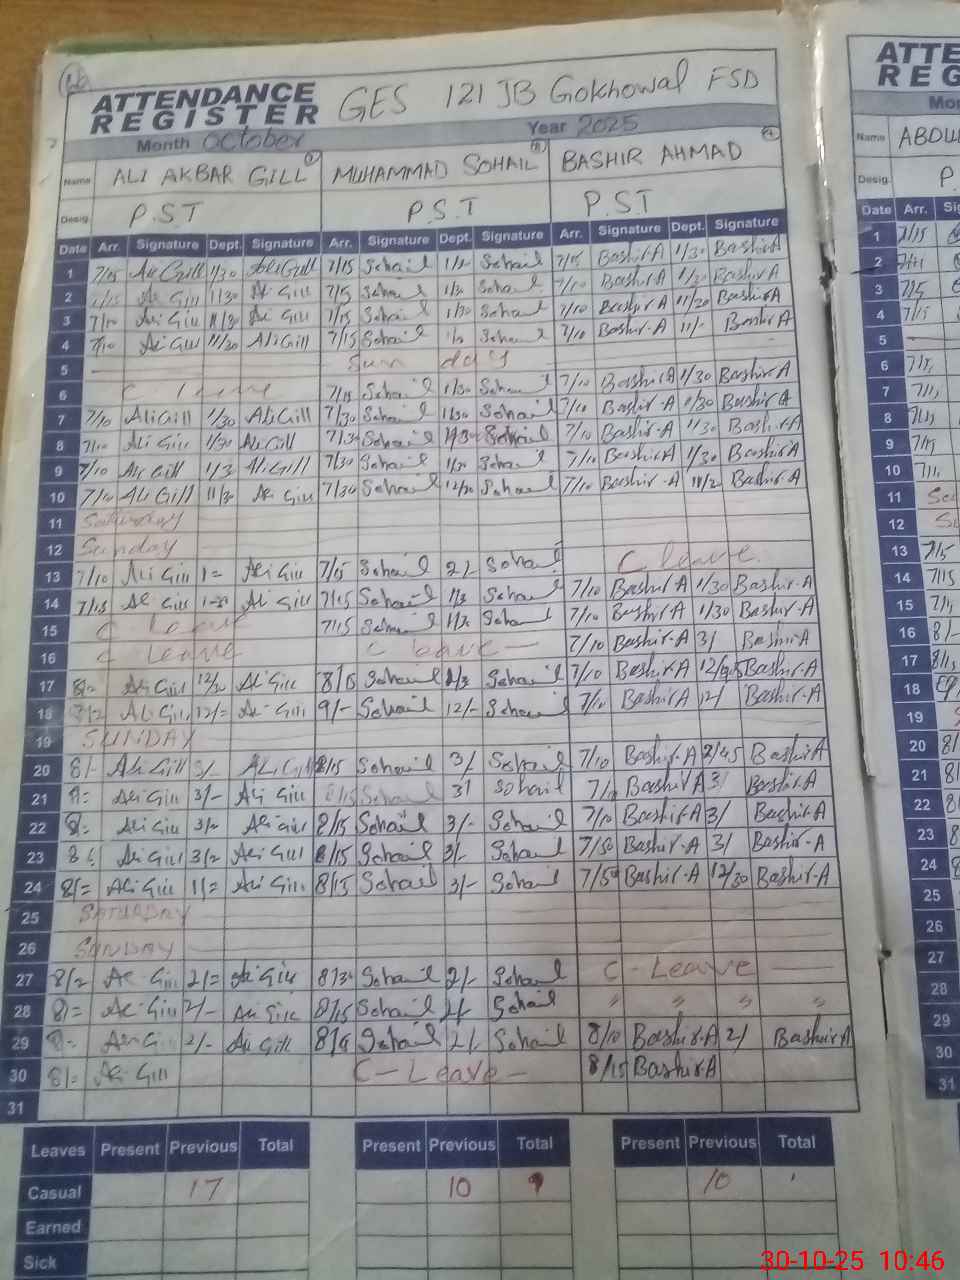 ATTENDANCE REGISTER GES 121 JB Gokhowal FSD
Month October Year 2025
Name ALI AKBAR GILL MUHAMMAD SOHAIL BASHIR AHMAD
Desig. P.S.T P.S.T P.S.T
Date Arr. Signature Dept. Signature Arr. Signature Dept. Signature Arr. Signature Dept. Signature
1 7/15 Ali Gill 1/30 Ali Gill 7/15 Sohail Sohail 7/15 Bashir A 1/30 Bashir A
2 Ali Gill 1/30 Ali Gill 7/15 Sohail 1/30 Sohail 7/10 Bashir A 1/30 Bashir A
3 7/10 Ali Gill 11/30 Ali Gill 7/15 Sohail 1/30 Sohail 7/10 Bashir A 11/20 Bashir A
4 7/10 Ali Gill 11/30 Ali Gill 7/15 Sohail Sohail 7/10 Bashir-A 11/- Bashir A
5 Sun day
6 C leave 7/15 Sohail 1/30 Sohail 7/10 Bashir A 1/30 Bashir A
7 7/10 Ali Gill 1/30 Ali Gill 7/30 Sohail 1/30 Sohail 7/10 Bashir-A 1/30 Bashir A
8 7/10 Ali Gill 1/30 Ali Gill 7/30 Sohail 1/30 Sohail 7/10 Bashir-A 1/30 Bashir-A
9 7/10 Ali Gill 1/3 Ali Gill 7/30 Sohail 1/30 Sohail 7/10 Bashir A 1/30 Bashir A
10 7/10 Ali Gill 11/30 Ali Gill 7/30 Sohail 12/30 Sohail 7/10 Bashir-A 11/2 Bashir-A
11 Saturday
12 Sunday
13 7/10 Ali Gill 1= Ali Gill 7/15 Sohail 2/- Sohail C leave
14 7/15 Ali Gill 1-30 Ali Gill 7/15 Sohail 1/3 Sohail 7/10 Bashir A 1/30 Bashir-A
15 C Leave 7/15 Sohail Sohail 7/10 Bashir A 1/30 Bashir-A
16 C Leave C leave - 7/10 Bashir-A 3/ Bashir A
17 8/= Ali Gill 12/30 Ali Gill 8/15 Sohail Sohail 7/10 Bashir-A Bashir-A
18 Ali Gill 12/= Ali Gill 9/- Sohail 12/- Sohail 7/10 Bashir-A 12/ Bashir-A
19 SUNDAY
20 8/- Ali Gill 3/- Ali Gill 8/15 Sohail 3/ Sohail 7/10 Bashir-A 2/45 Bashir A
21 8/= Ali Gill 3/- Ali Gill 8/15 Sohail 3/ Sohail 7/10 Bashir A 3/ Bashir-A
22 8/= Ali Gill 3/- Ali Gill 8/15 Sohail 3/- Sohail 7/10 Bashir A 3/ Bashir-A
23 Ali Gill 3/= Ali Gill 8/15 Sohail 3/- Sohail 7/50 Bashir-A 3/ Bashir-A
24 8/= Ali Gill 11= Ali Gill 8/15 Sohail 3/- Sohail 7/50 Bashir-A 12/30 Bashir-A
25 SATURDAY
26 SUNDAY
27 8/= Ali Gill 2/= Ali Gill 8/30 Sohail 2/- Sohail C-Leave
28 8/= Ali Gill 2/- Ali Gill 8/15 Sohail 2/ Sohail " " " "
29 Ali Gill 2/- Ali Gill Sohail 2/- Sohail 8/10 Bashir-A 2/ Bashir A
30 8/= Ali Gill C-Leave- 8/15 Bashir A
31
Leaves Present Previous Total Present Previous Total Present Previous Total
Casual 17 10 9 10
Earned
Sick
ATTE
REG
Mon
Name ABDU
Desig. P.
Date Arr. Sig
1 7/15
2 7/11
3 7/5
4 7/15
5
6
7
8
9 7/15
10
11
12
13 7/5
14 7/15
15
16 8/-
17
18
19
20
21
22
23
24
25
26
27
28
29
30
31
30-10-25 10:46